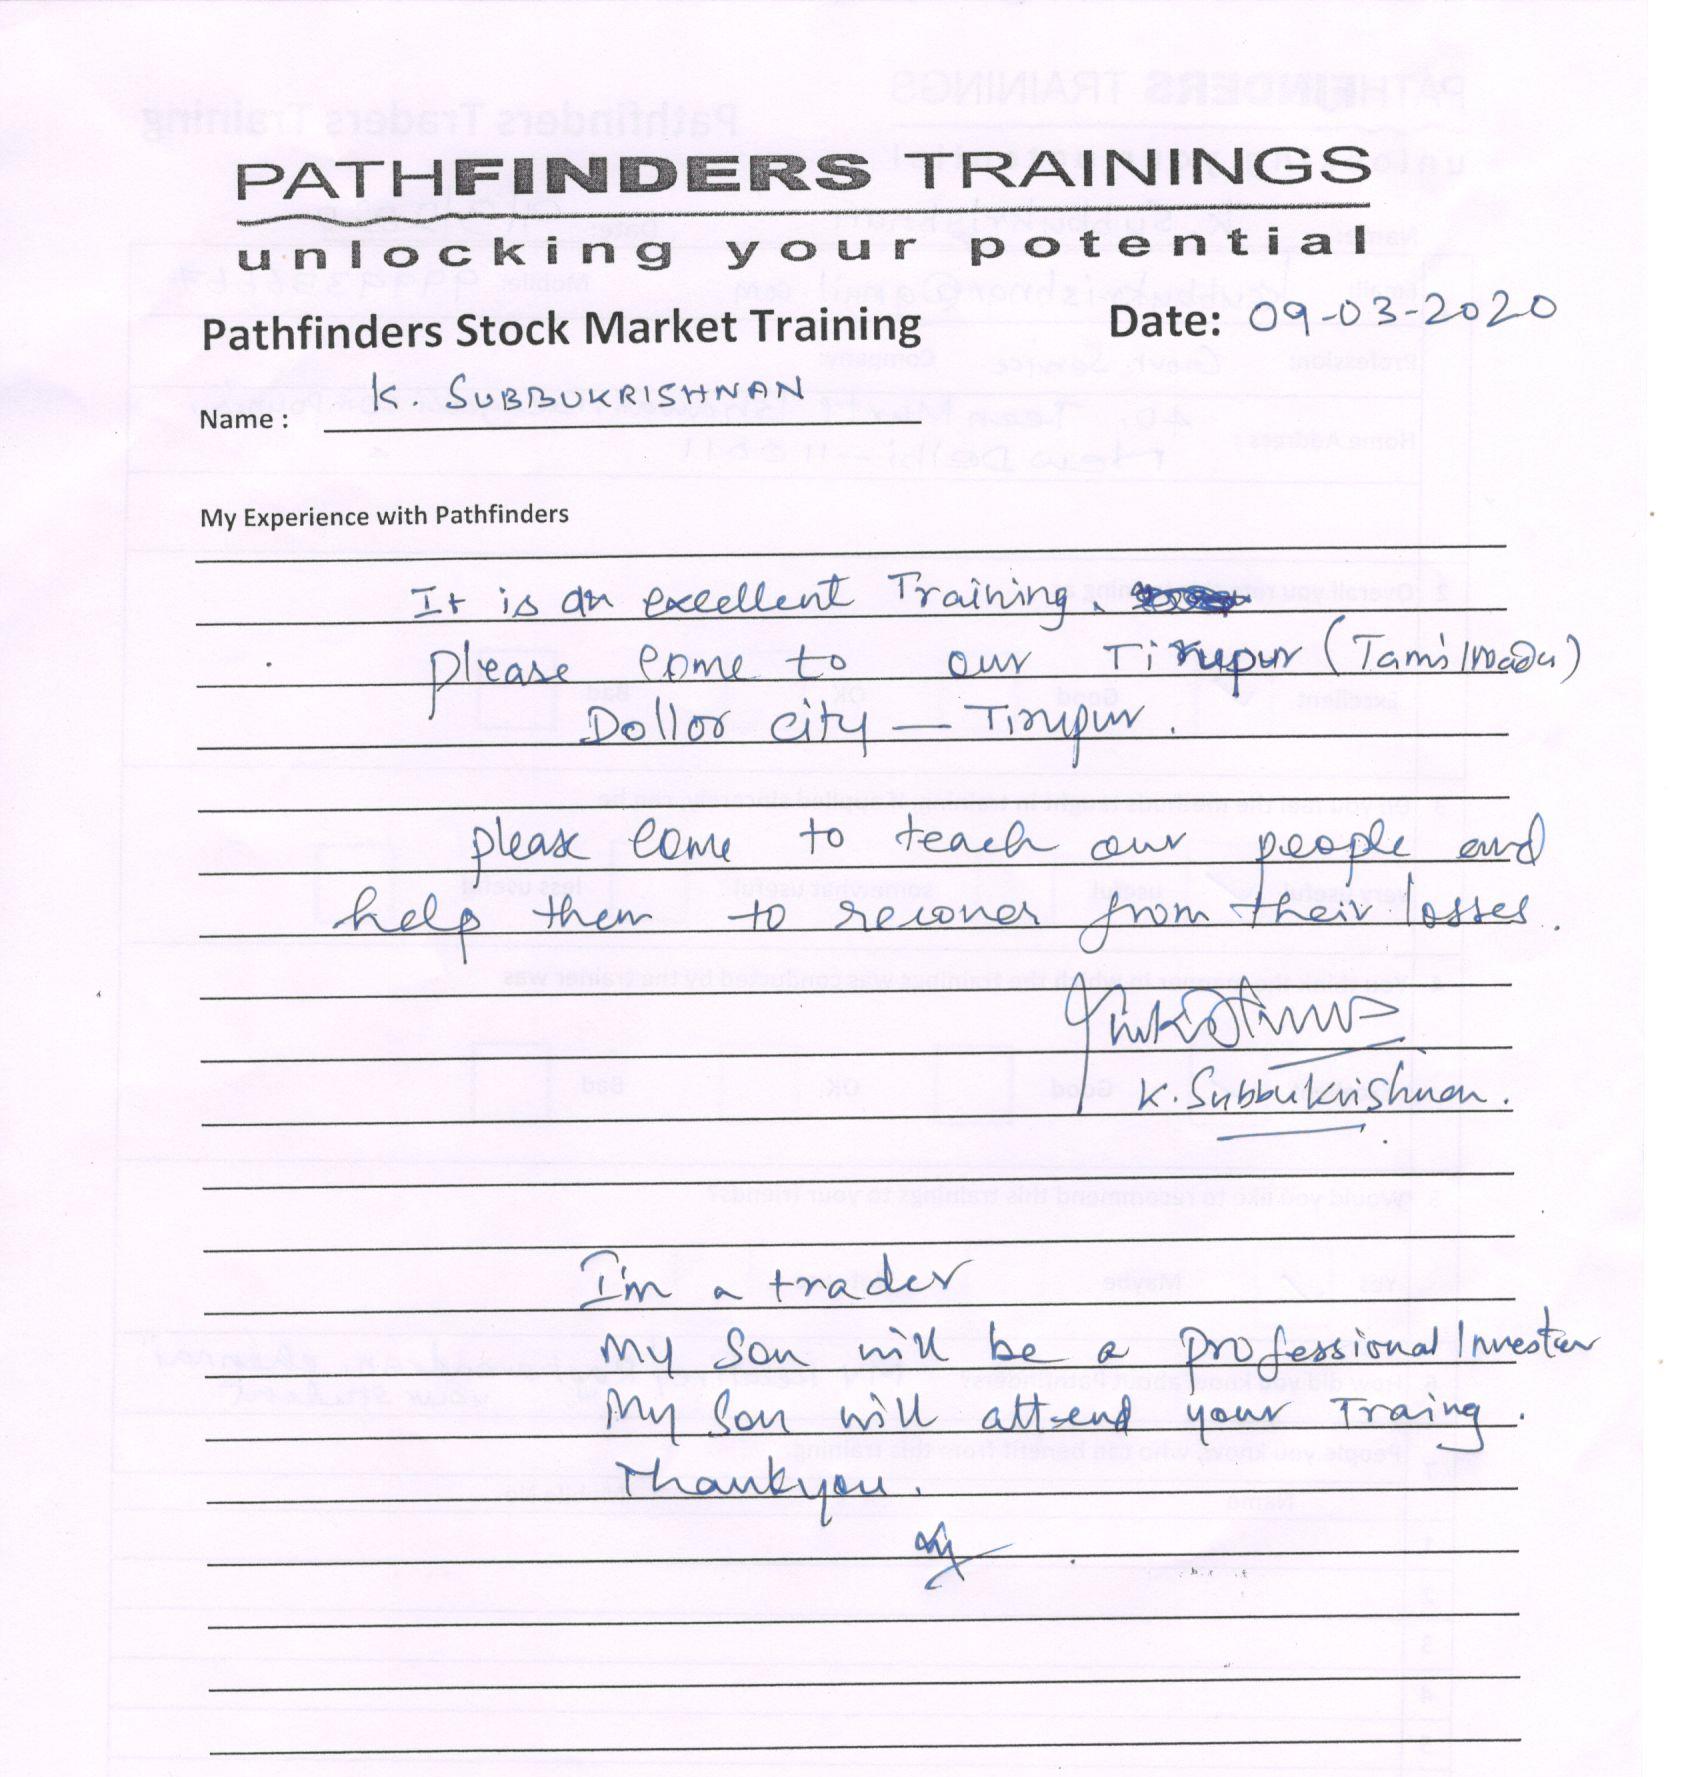 PATHFINDERS TRAININGS
unlocking your potential
Pathfinders Stock Market Training Date: 09-03-2020
Name : K. SUBBUKRISHNAN
My Experience with Pathfinders
It is an excellent Training.
please come to our Tirupur (Tamilnadu)
Dollor city — Tirupur.
please come to teach our people and
help them to recover from their losses.
K. Subbukrishnan.
I'm a trader
My Son will be a professional Investor
My Son will attend your Traing.
Thankyou.